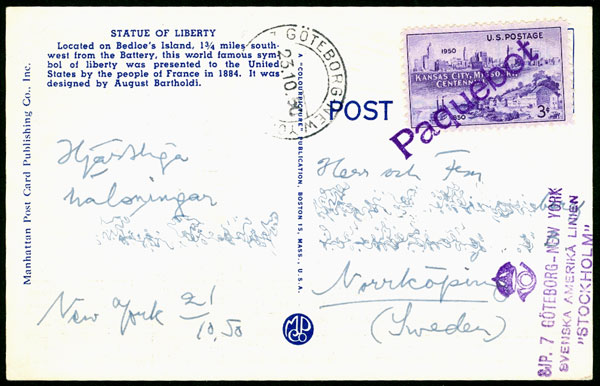 STATUE OF LIBERTY
Located on Bedloe's Island, 1¾ miles south-
west from the Battery, this world famous sym-
bol of liberty was presented to the United
States by the people of France in 1884. It was
designed by August Bartholdi.
Manhattan Post Card Publishing Co., Inc.
A "COLOURPICTURE" PUBLICATION, BOSTON 15, MASS., U.S.A.
7 GÖTEBORG-NEW YORK
23.10.50
POST
U.S. POSTAGE
1950
KANSAS CITY, MISSOURI
CENTENNIAL
1850
3¢
Paquebot
Hjärtliga
hälsningar
New York 21/10.50
Herr och Fru
Norrköping
(Sweden)
MPCo
SJP. 7 GÖTEBORG-NEW YORK
SVENSKA AMERIKA LINIEN
"STOCKHOLM"